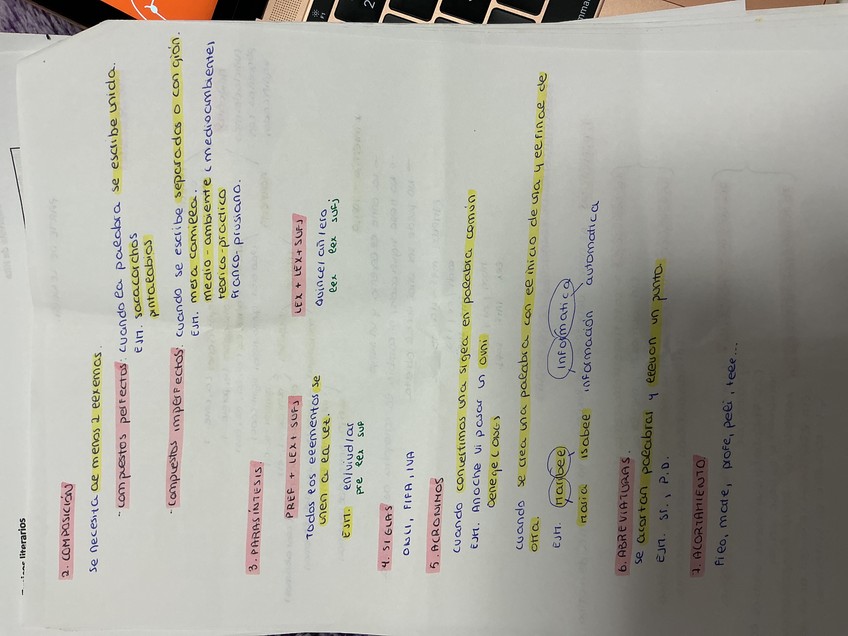 literarios
2. COMPOSICIÓN
Se necesita al menos 2 lexemas.
- Compuestos perfectos: cuando la palabra se escribe unida.
EJM. sacacorchos
pintalabios
- Compuestos imperfectos: cuando se escribe separados o con guión.
EJM. mesa camilla.
medio-ambiente (medioambiente)
teórico-práctico
franco-prusiano.
3. PARASÍNTESIS
PREF + LEX + SUFJ
LEX + LEX + SUFJ
Todos los elementos se
unen a la vez.
Quince/añ/ero
lex lex sufj
EJM. en/viud/ar
pre lex suf
4. SIGLAS
ONU, FIFA, IVA
5. ACRÓNIMOS
Cuando convertimos una sigla en palabra común
EJM. Anoche vi pasar un ovni
Cuando se crea una palabra con el inicio de una y el final de
otra.
EJM. maribel informática
María Isabel información automática
6. ABREVIATURAS.
Se acortan palabras y llevan un punto.
EJM. Sr., P.D.
7. ACORTAMIENTO
Filo, mate, profe, peli, tele...